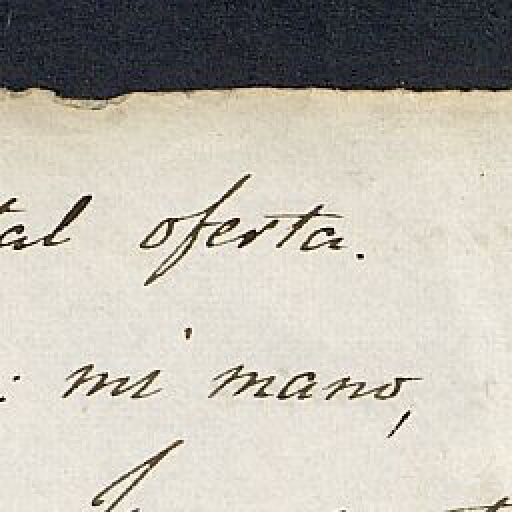 tal oferta.
: mi mano,